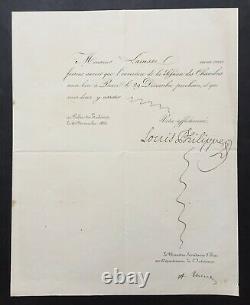 Monsieur Lainsir, nous vous
faisons savoir que l'ouverture de la Session des Chambres
aura lieu à Paris le 29 Décembre prochain, et que
vous devez y assister
au Palais des Tuileries
le Novembre
Votre affectionné
Louis Philippe
Le Ministre Secrétaire d'Etat
au Département de l'Intérieur